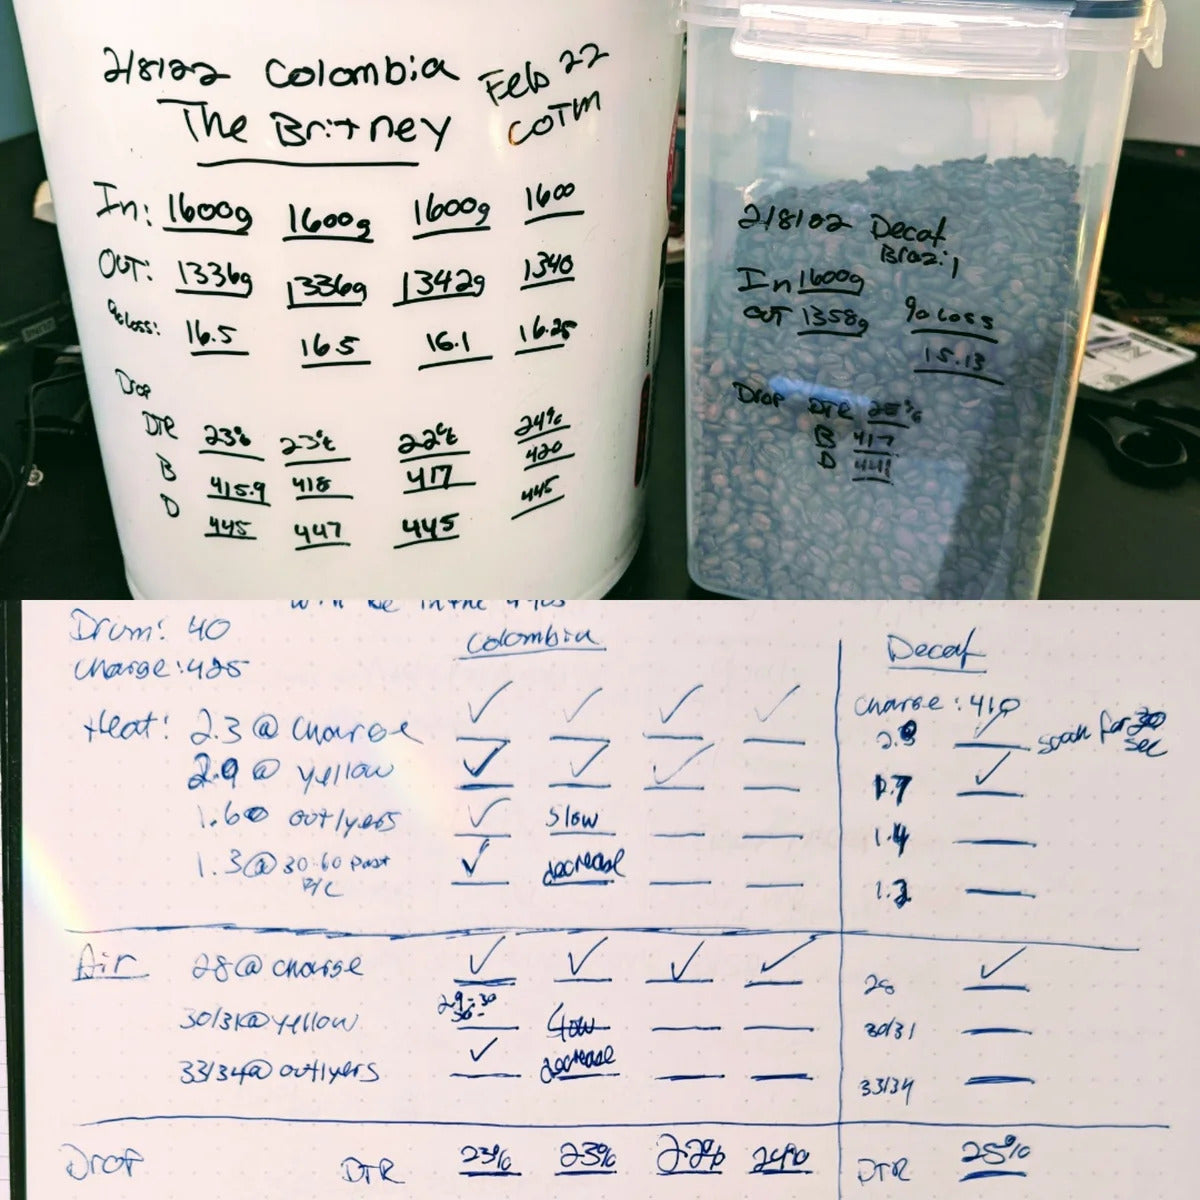 2/8/22 Colombia Feb 22
The Britney COTM
In: 1600g 1600g 1600g 1600
OUT: 1336g 1336g 1342g 1340
% loss: 16.5 16.5 16.1 16.25
Drop
DTR 23% 23% 22% 24%
B 415.9 418 417 420
D 445 447 445 445
2/8/22 Decaf
Brazil
In 1600g
OUT 1358g % Loss
15.13
Drop DTR 25%
B 417
D 441
Drum: 40 Colombia Decaf
Charge: 425
Charge: 410
Heat: 2.3 @ Charge
soak for 30 sec
2.9 @ yellow 1.7
1.60 outlyers slow 1.4
1.3 @ 30-60 past decrease 1.2
F/C
Air 28 @ charge 28
29-30
30/31 @ yellow slow 30/31
33/34 @ outlyers decrease 33/34
Drop DTR 23% 23% 22% 24% DTR 25%